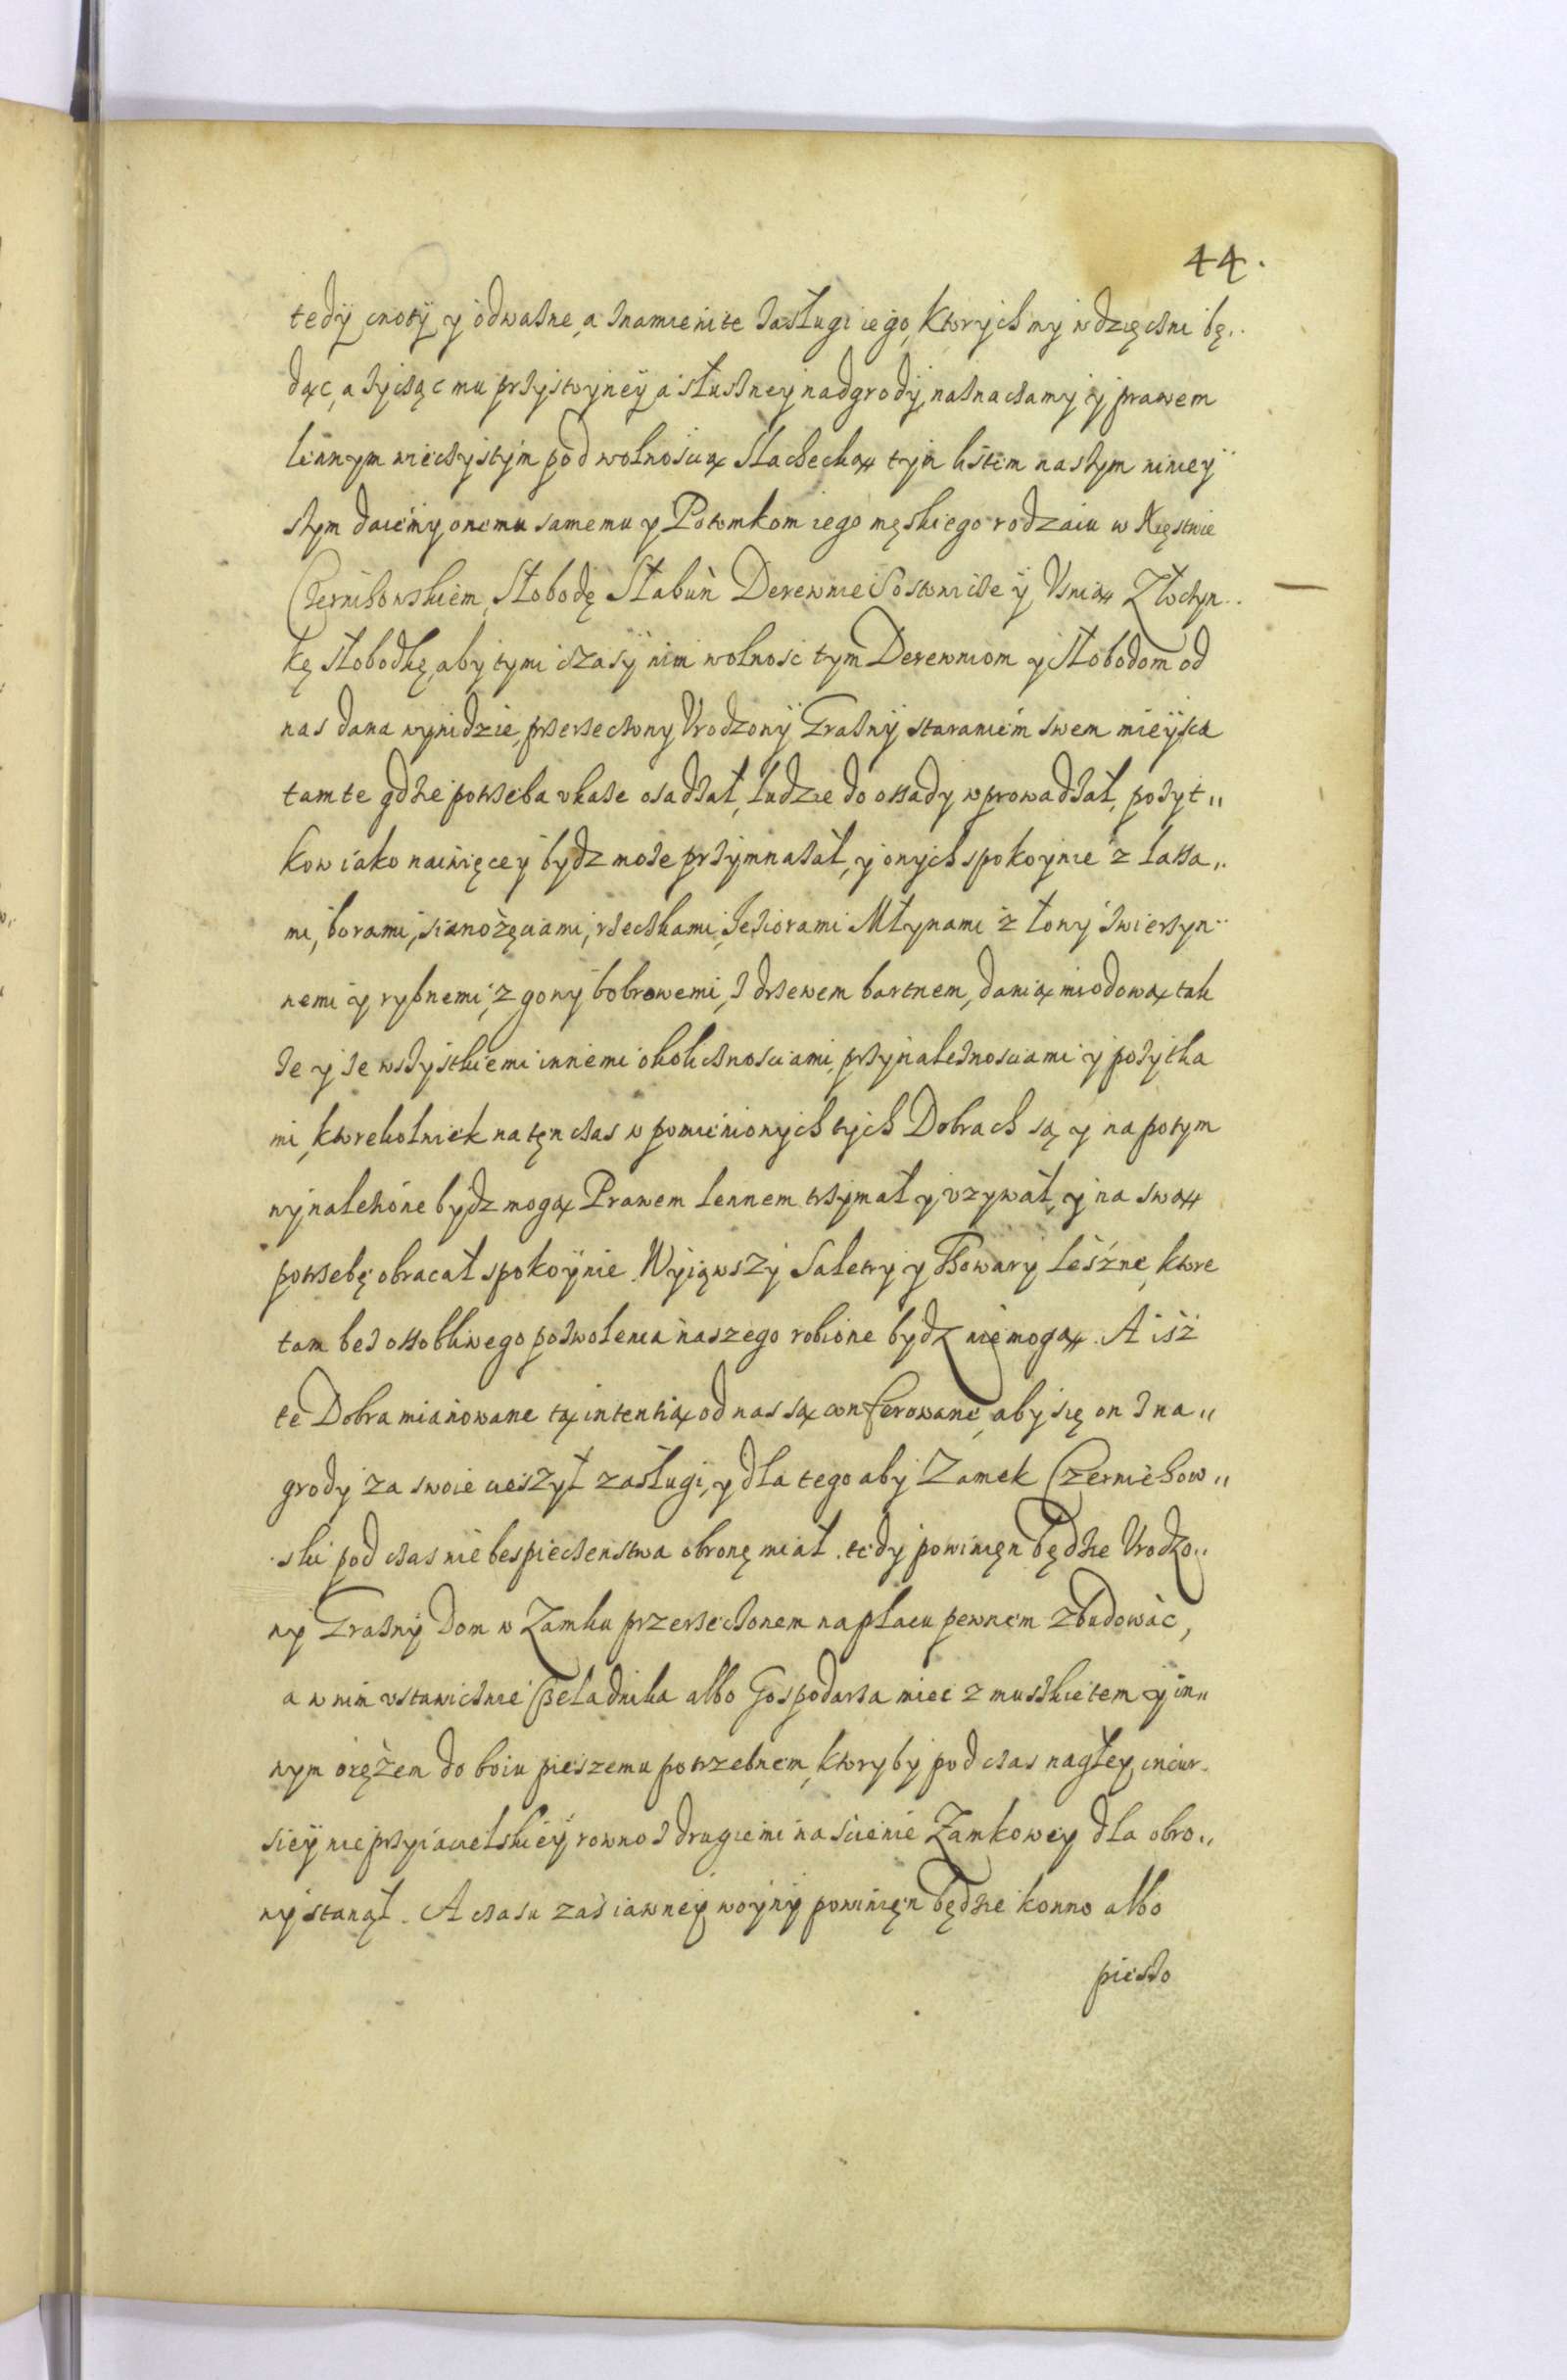 44.
tedy cnoty y odważne, a znamienite zasługi iego, ktorych my wdzięczni bę„
dąc, a życząc mu przystoyney a słuszney nadgrody, naznaczamy y prawem
lennym wieczystym pod wolnością slachecką tym listem naszym niniey„
szym daiemy onemu samemu y Potomkom iego męskiego rodzaiu w Xięstwie
Czernihowskiem, Słobodę Słabun Derewnie Sosłownicze y Usnią Złoczyn„
kę słobodkę, aby tymi czasy nim wolnosc tym Derewniom y słobodom od
nas dana wynidzie, przerzeczony Urodzony Grazny staraniem swem mieysca
tamte gdzie potrzeba ukaze osadzał, ludzie do ossady wprowadzał, pożyt„
kow iako naiwięcey bydz może przymnażał, y onych spokoynie z lassa„
mi, borami, sianożęciami, rzeczkami, Jeziorami Młynami z łowy zwierzyn„
nemi y rybnemi, z gony bobrowemi, z drzewem bartnem, danią miodową tak
że y ze wszystkiemi innemi okolicznosciami, przynależnosciami y pożytka
mi, ktorekolwiek na tęn czas w pomienionych tych Dobrach są y na potym
wynalezione bydz mogą Prawem lennem trzymał y uzywał, y na swoą
potrzebę obracał spokoynie. Wyiąwszy Saletry y Towary leśne, ktore
tam bez ossobliwego pozwolenia naszego robione bydz nie mogą. A isz
te Dobra mianowane tą intentią od nas są conferowane, aby się on z na„
grody za swoie cieszył zasługi, y dla tego aby Zamek Czerniehow„
ski pod czas niebespieczenstwa obronę miał. tedy powinięn będzie Urodzo„
ny Grazny Dom w Zamku przerzeczonem na placu pewnem zbudowac,
a w nim ustawicznie Czeladnika albo Gospodarza miec z muszkietem y in„
nym orężem do boiu pieszemu potrzebnem, ktoryby pod czas nagłey incur„
siey nieprzyiacielskiey rowno z drugiemi na scienie Zamkowey dla obro„
ny stanął. A czasu zas iawney woyny powinięn będzie konno albo
pieszo